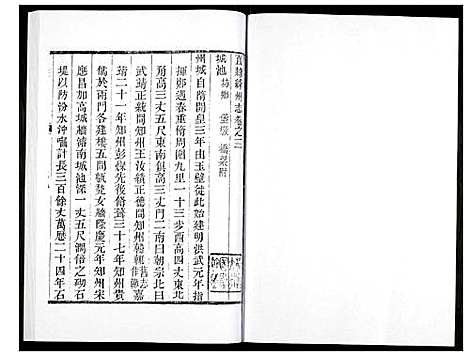 直隸絳州志卷之二
城池 坊鄉 堡寨 橋梁附
州城自隋開皇三年由玉壁徙此始建明洪武元年指
揮鄭遇春重脩周圍九里一十三步西高四丈東北
角高三丈五尺東南俱高三丈門二南曰朝宗北曰
武靖正統間知州王汝績正德間知州韓輒舊志嘉
靖二十一年知州彭 先後脩葺三十七年知州貴
於南門各建樓 甃女牆隆慶元年知州宋
應昌加高城牆濬南城池深一丈五尺濶倍之砌石
堤以防汾水沖囓計長三百餘丈萬歷二十四年石